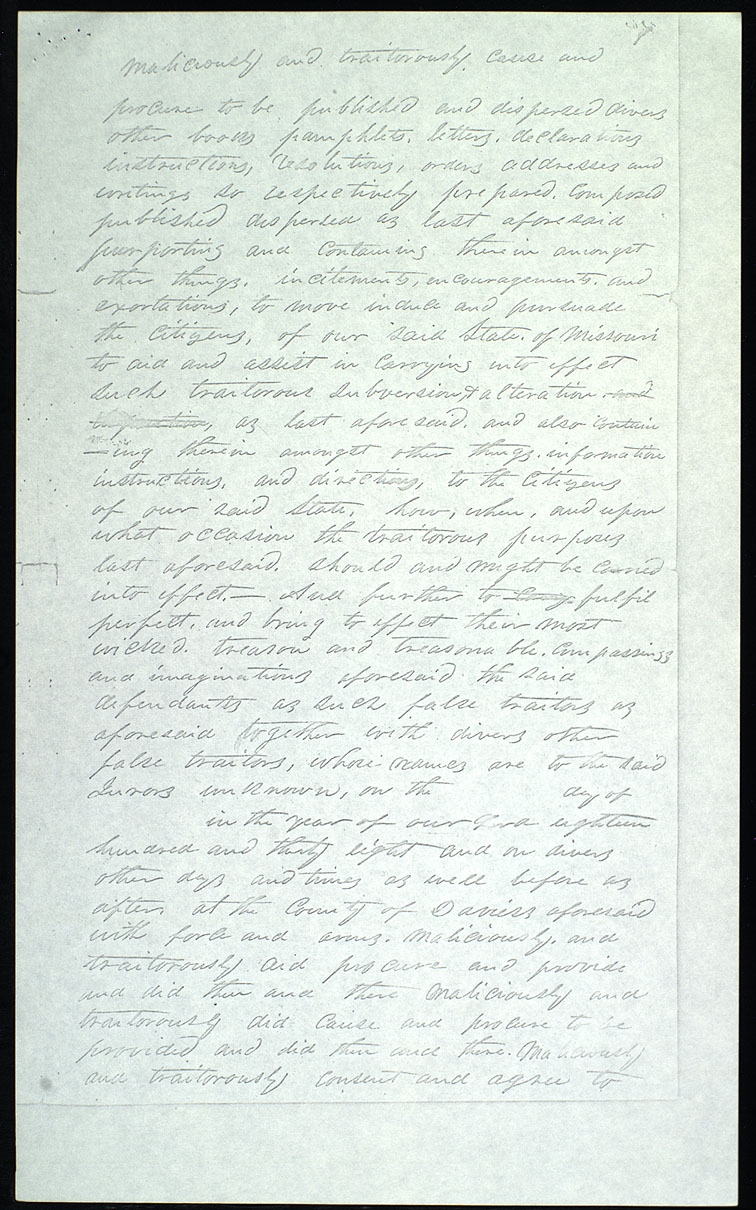 maliciously and traitorously cause and
procure to be published and dispersed divers
other books pamphlets, letters, declarations
instructions, resolutions, orders addresses and
writings so respectively prepared, Composed
published dispersed as last aforesaid
purporting and Containing therein amongst
other things, incitements, encouragements, and
exortations, to move induce and pursuade
the Citizens, of our said State, of Missouri
to aid and assist in Carrying into effect
such traitorous subversion, & alteration and
as last aforesaid, and also contain
-ing therein amongst other things, information
instructions, and directions, to the Citizens
of our said State, how, when, and upon
what occasion the traitorous purposes
last aforesaid, should and might be Carried
into effect.— And further to fulfil
perfect, and bring to effect their most
wicked, treason and treasonable, Compassings
and imaginations aforesaid the said
defendants as such false traitors as
aforesaid together with divers other
false traitors, whose names are to the said
Jurors unknown, on the day of
in the year of our Lord eighteen
hundred and thirty eight and on divers
other days and times as well before as
after, at the County of Daviess aforesaid
with force and arms, maliciously, and
traitorously did procure and provide
and did then and there maliciously and
traitorously did Cause and procure to be
provided and did then and there, Maliciously
and traitorously consent and agree to